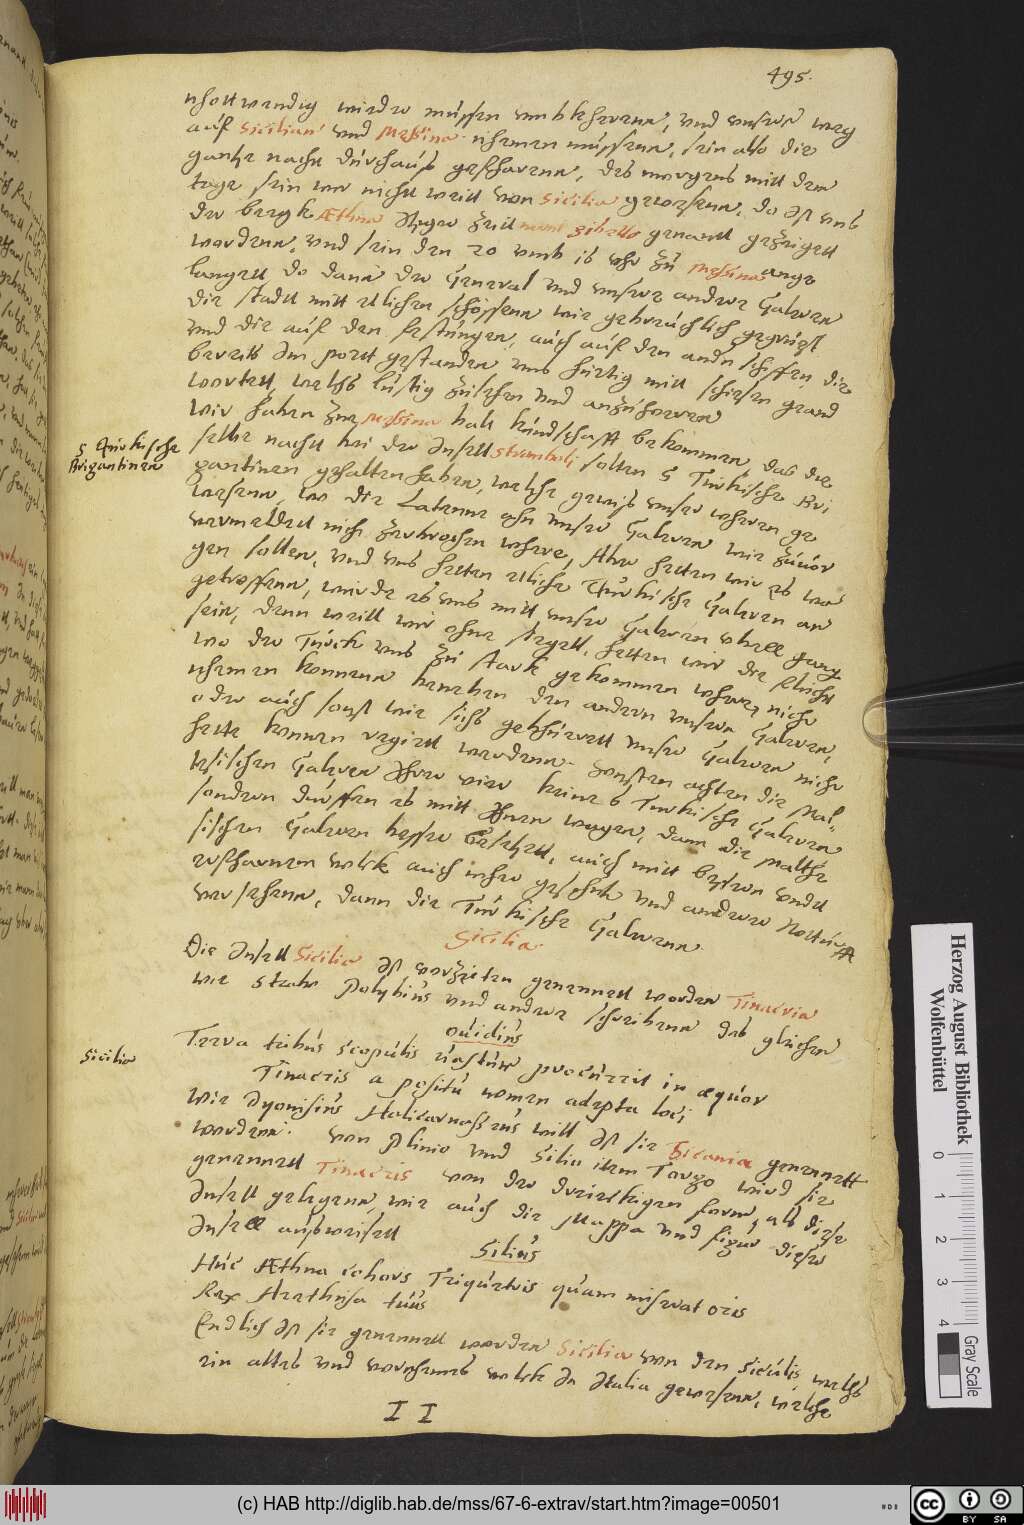 495.
nhottwendig wieder müssen umbkheren, und unser weg
auf Sicilien und Messina nhemen müssenn, sein also die
gantze nacht durchauß gefharenn, des morgens mitt dem
tage sein wir nicht weitt von Sicilia gewesenn, da ist uns
der bergk Æthna itziger Zeitt mont gibello genant gezeiget
wordenn, und sein den 20 umb 16 uhr zu Messina ange
langett do dann der General und unsere andere Galeren
die stadtt mitt etlichen schössenn wie gebreuchlich gegrüest
und die auf den festungen, auch auf den andn schiffen, die
bereits im portt gestanden uns hurtig mitt schiesen
wortett, welchs lustig zusehen und anzuhoeren
Wir haben zue Messina balt kundschafft bekommen, das die
selbe nacht bei der Insell Stromboli solten 5 Turkische Bri
gantinen gehalten haben, welche gewiß unser wheren ge
wesenn, wo die Laterne ahn unser Galeren wie zuvor
vermeldett nich zerbrochen where, Aber hetten wir es wa
gen sollen, und uns hetten etliche Turkische Galeren an
getroffenn, wurde es uns mitt unser Galeren ubell gang
sein, denn weill wir ohne segell, hetten wir die flucht
wo der Turck uns zu stark gekommen where, nicht
nhemen konnenn beneben den anderen unseren Galeren,
oder auch sonst wie sichs gebhürett unser Galeren nicht
hette konnen regiett werdenn. Sonsten achten die Mal-
tesischen Galeren ihrer vier keine 6 Turkische Galeren
sondern dürffen es mitt ihnen wagen, dann die Malthe
sischen Galeren besser besetzett, auch mitt bessren undt
erfharnern volck auch mher geschutz und anderer Notturfft
versehenn, dann die Turkische Galerenn.
5 Turkische
Brigantinen
Sicilia.
Die Insell Sicilia ist vorzeiten genennett worden Tinacria
wie Strabo Polybius und andere schreibenn des gleichen
Ouidius
Terra tribus scopulis uastum procurrit in æquor
Tinacris a positu nomen adepta loci
Sicilia
Wie Dyonisius Halicarnasseus will ist sie Sicania genennett
wordenn. von Plinio und Silio item Tarzo wird sie
genennett Tinacris von der dreieckigen form, als diese
Insell gelegenn, wie auch die Mappa und figur dieser
Insell außweisett
Silius
Huic Æthna cohors Triquetris quam miserat oris
Rex Arethusa tuus
Endlich ist sie genennett worden Sicilia von den Siculis welchs
ein altes und vornhemes volck in Italia gewesenn, welche
I I
Herzog August Bibliothek
Wolfenbüttel
0 1 2 3 4
Gray Scale
(c) HAB http://diglib.hab.de/mss/67-6-extrav/start.htm?image=00501
CC BY SA